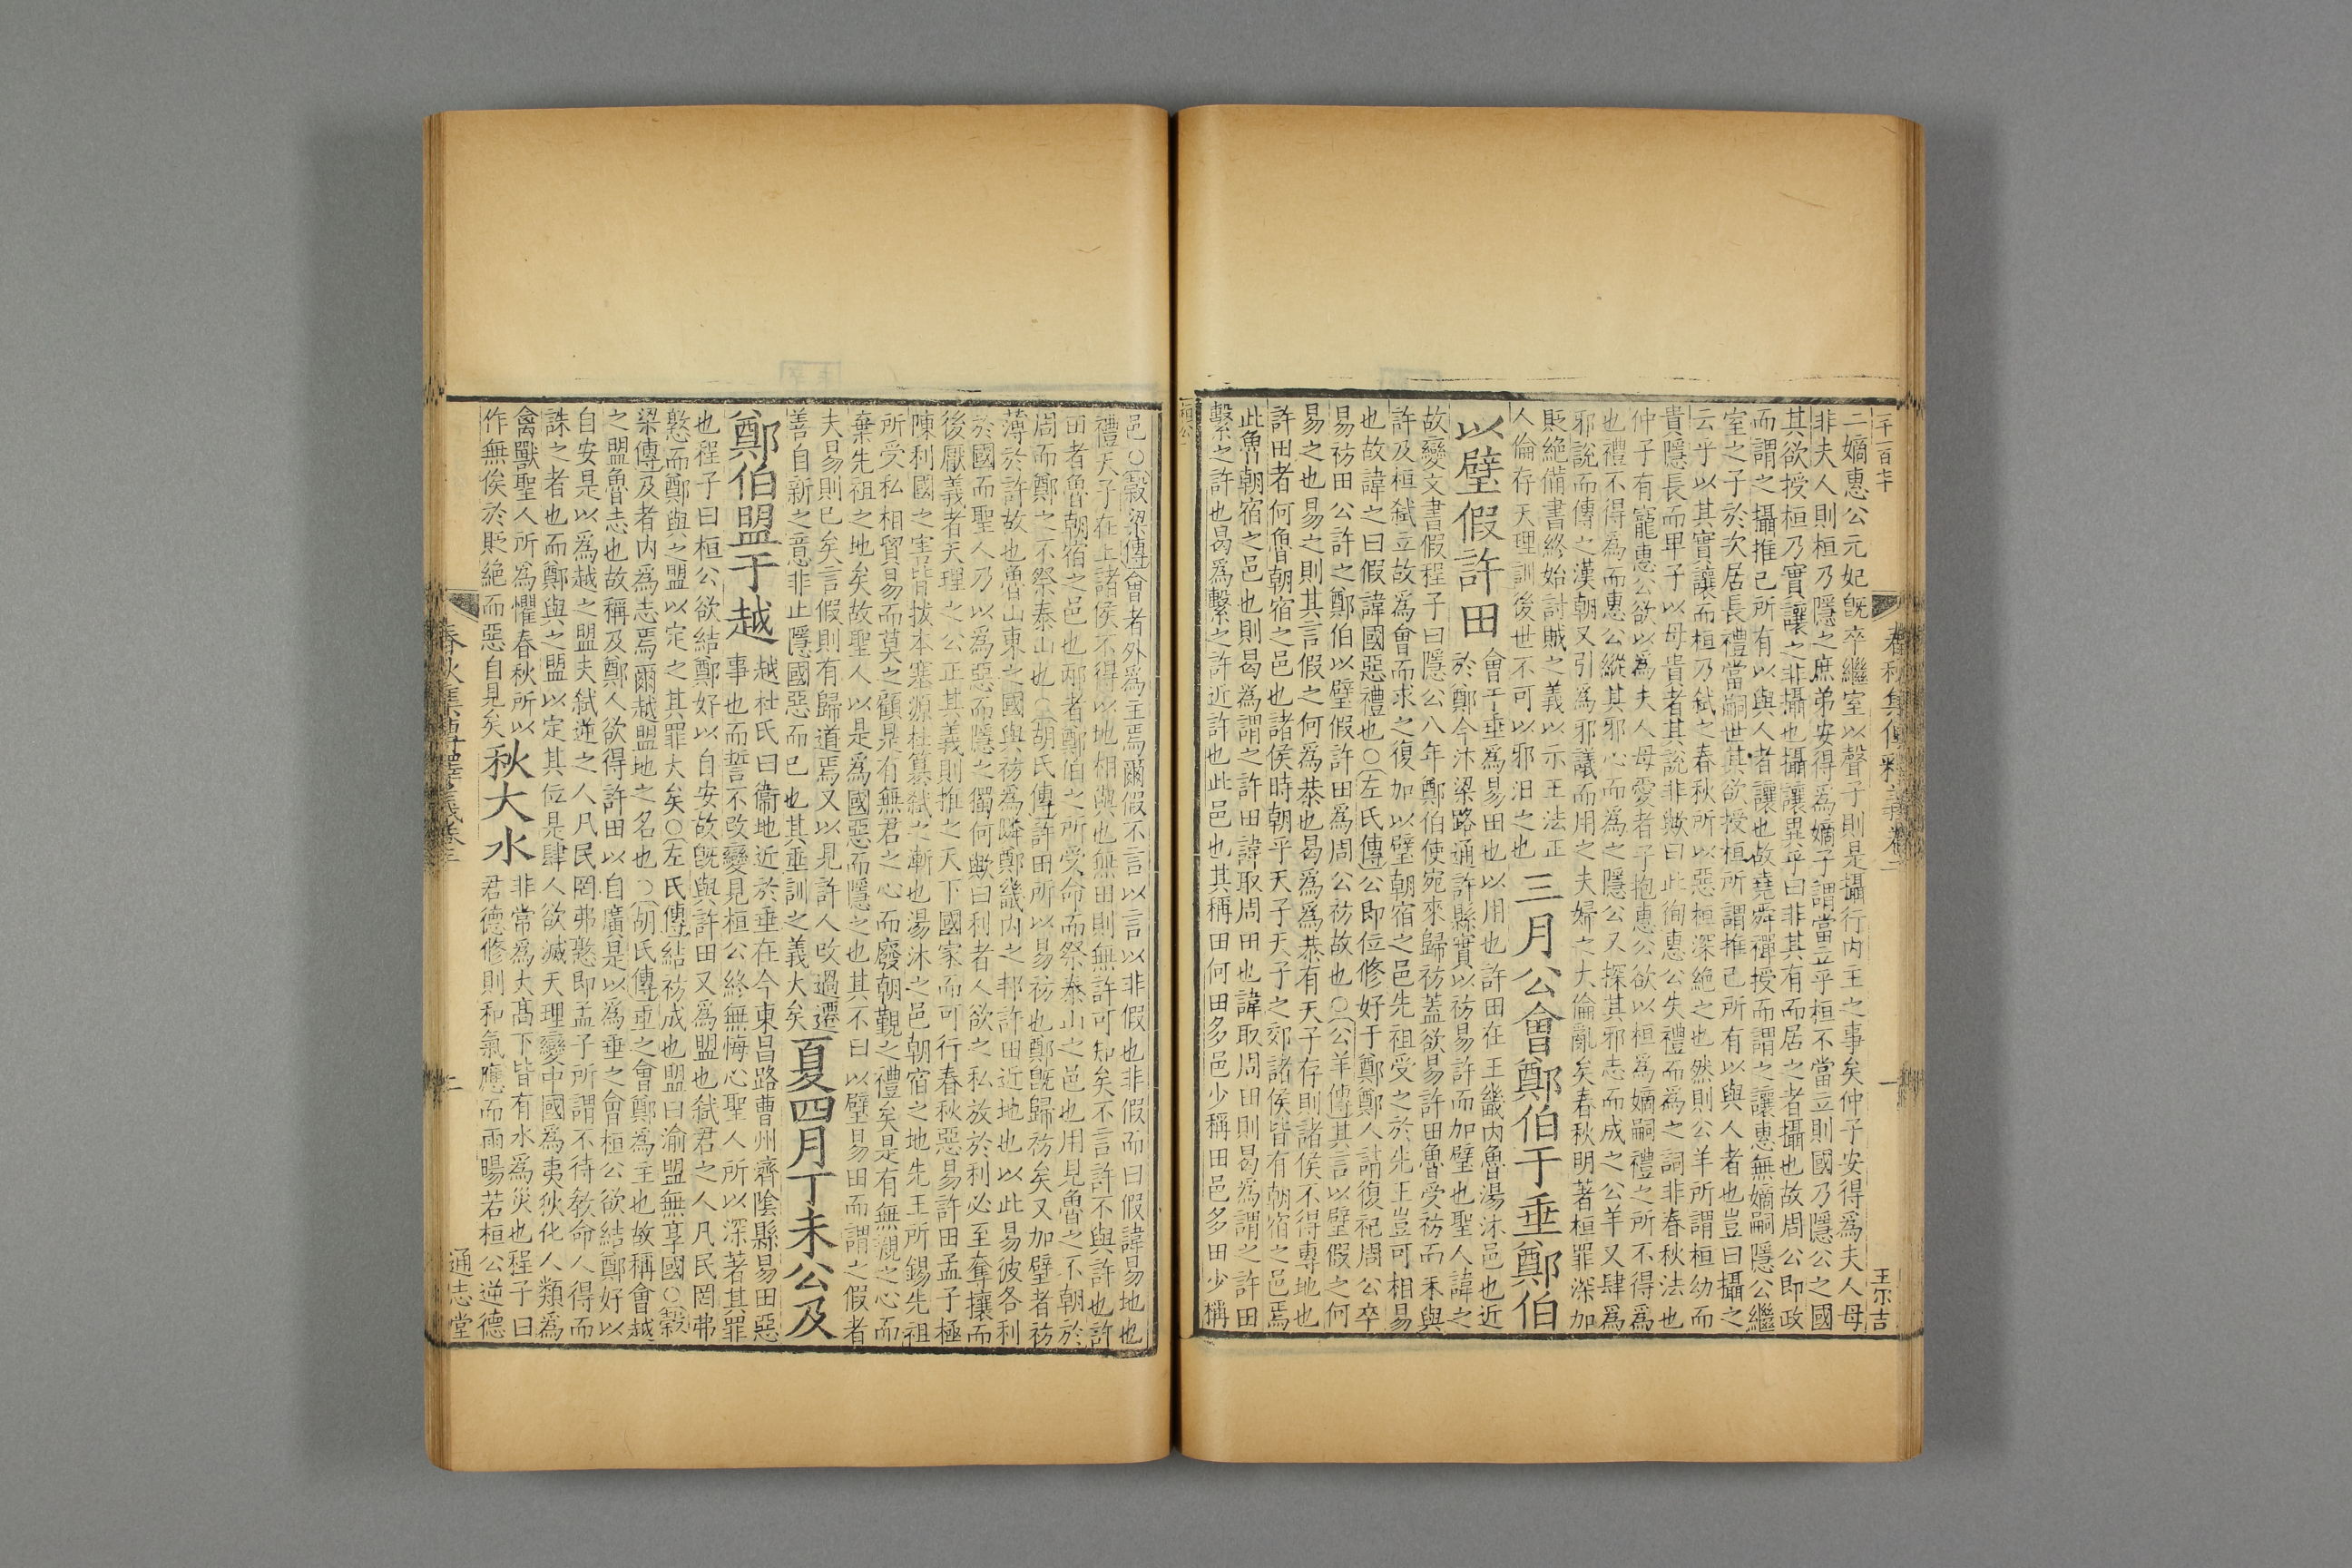 二千一百七十
春秋集傳釋義卷三
一
王尔吉
二嫡惠公元妃旣卒繼室以聲子則是攝行内主之事矣仲子安得爲夫人母
非夫人則桓乃隱之庶弟安得爲嫡子謂當立乎桓不當立則國乃隱公之國
其欲授桓乃實讓之非攝也攝讓異乎曰非其有而居之者攝也故周公即政
而謂之攝推己所有以與人者讓也故堯舜禪授而謂之讓惠無嫡嗣隱公繼
室之子於次居長禮當嗣世其欲授桓所謂推己所有以與人者也豈曰攝之
云乎以其實讓而桓乃弑之春秋所以惡桓深絶之也然則公羊所謂桓幼而
貴隱長而卑子以母貴者其說非歟曰此徇惠公失禮而爲之詞非春秋法也
仲子有寵惠公欲以爲夫人母愛者子抱惠公欲以桓爲嫡嗣禮之所不得爲
也禮不得爲而惠公縱其邪心而爲之隱公又探其邪志而成之公羊又肆爲
邪說而傳之漢朝又引爲邪議而用之夫婦之大倫亂矣春秋明著桓罪深加
貶絶備書終始討賊之義以示王法正
人倫存天理訓後世不可以邪汨之也
三月公會鄭伯于垂鄭伯
以璧假許田
會于垂爲易田也以用也許田在王畿内魯湯沐邑也近
於鄭今汴梁路通許縣實以祊易許而加璧也聖人諱之
故變文書假程子曰隱公八年鄭伯使宛來歸祊蓋欲易許田魯受祊而未與
許及桓弑立故爲會而求之復加以璧朝宿之邑先祖受之於先王豈可相易
也故諱之曰假諱國惡禮也○左氏傳公即位修好于鄭鄭人請復祀周公卒
易祊田公許之鄭伯以璧假許田爲周公祊故也○公羊傳其言以璧假之何
易之也易之則其言假之何爲恭也曷爲爲恭有天子存則諸侯不得專地也
許田者何魯朝宿之邑也諸侯時朝乎天子天子之郊諸侯皆有朝宿之邑焉
此魯朝宿之邑也則曷爲謂之許田諱取周田也諱取周田則曷爲謂之許田
繫之許也曷爲繫之許近許也此邑也其稱田何田多邑少稱田邑多田少稱
桓公
邑○穀梁傳會者外爲主焉爾假不言以言以非假也非假而曰假諱易地也
禮天子在上諸侯不得以地相與也無田則無許可知矣不言許不與許也許
田者魯朝宿之邑也邴者鄭伯之所受命而祭泰山之邑也用見魯之不朝於
周而鄭之不祭泰山也○胡氏傳許田所以易祊也鄭旣歸祊矣又加璧者祊
薄於許故也魯山東之國與祊爲鄰鄭畿内之邦許田近地也以此易彼各利
於國而聖人乃以爲惡而隱之獨何歟曰利者人欲之私放於利必至奪攘而
後厭義者天理之公正其義則推之天下國家而可行春秋惡易許田孟子極
陳利國之害皆拔本塞源杜簒弑之漸也湯沐之邑朝宿之地先王所錫先祖
所受私相貿易而莫之顧是有無君之心而廢朝覲之禮矣是有無親之心而
棄先祖之地矣故聖人以是爲國惡而隱之也其不曰以璧易田而謂之假者
夫易則已矣言假則有歸道焉又以見許人改過遷
善自新之意非止隱國惡而已也其垂訓之義大矣
夏四月丁未公及
鄭伯盟于越
越杜氏曰衞地近於垂在今東昌路曹州濟陰縣易田惡
事也而誓不改變見桓公終無悔心聖人所以深著其罪
也程子曰桓公欲結鄭好以自安故旣與許田又爲盟也弑君之人凡民罔弗
憝而鄭與之盟以定之其罪大矣○左氏傳結祊成也盟曰渝盟無享國○穀
梁傳及者内爲志焉爾越盟地之名也○胡氏傳垂之會鄭爲主也故稱會越
之盟魯志也故稱及鄭人欲得許田以自廣是以爲垂之會桓公欲結鄭好以
自安是以爲越之盟夫弑逆之人凡民罔弗憝即孟子所謂不待敎命人得而
誅之者也而鄭與之盟以定其位是肆人欲滅天理變中國爲夷狄化人類爲
禽獸聖人所爲懼春秋所以
作無俟於貶絶而惡自見矣
秋大水
非常爲大髙下皆有水爲災也程子曰
君德修則和氣應而雨暘若桓公逆德
春秋集傳釋義卷三
二
通志堂